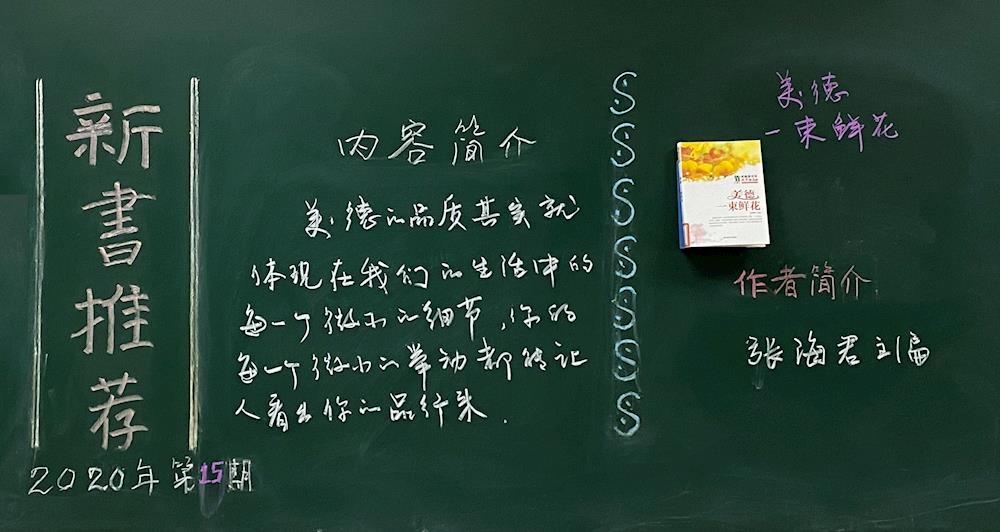 新書推荐
2020年第15期
内容简介
美德的品质其实就
体现在我们的生活中的
每一个微小的细节,你的
每一个微小的举动都能让
人看出你的品行来.
SSSSSSSS
美德
一束鲜花
美德
一束鲜花
作者简介
张海君主编